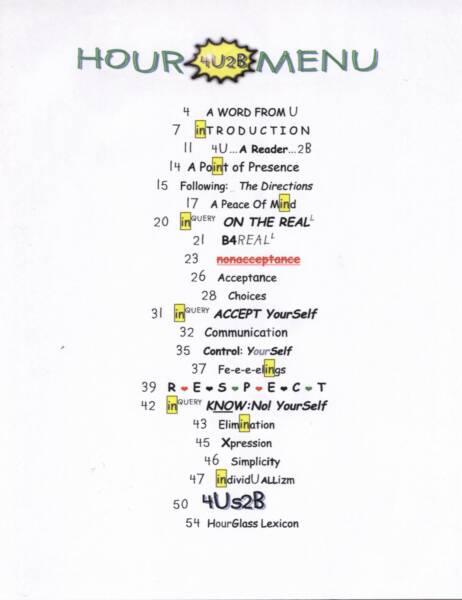 HOUR 4U2B MENU
4 A WORD FROM U
7 inTRODUCTION
11 4U...A Reader...2B
14 A Point of Presence
15 Following: The Directions
17 A Peace Of Mind
20 inQUERY ON THE REALL
21 B4REALL
23 nonacceptance
26 Acceptance
28 Choices
31 inQUERY ACCEPT YourSelf
32 Communication
35 Control: YourSelf
37 Fe-e-e-elings
39 R❤E❤S❤P❤E❤C❤T
42 inQUERY KNOW:No! YourSelf
43 Elimination
45 Xpression
46 Simplicity
47 individUALLizm
50 4Us2B
54 HourGlass Lexicon